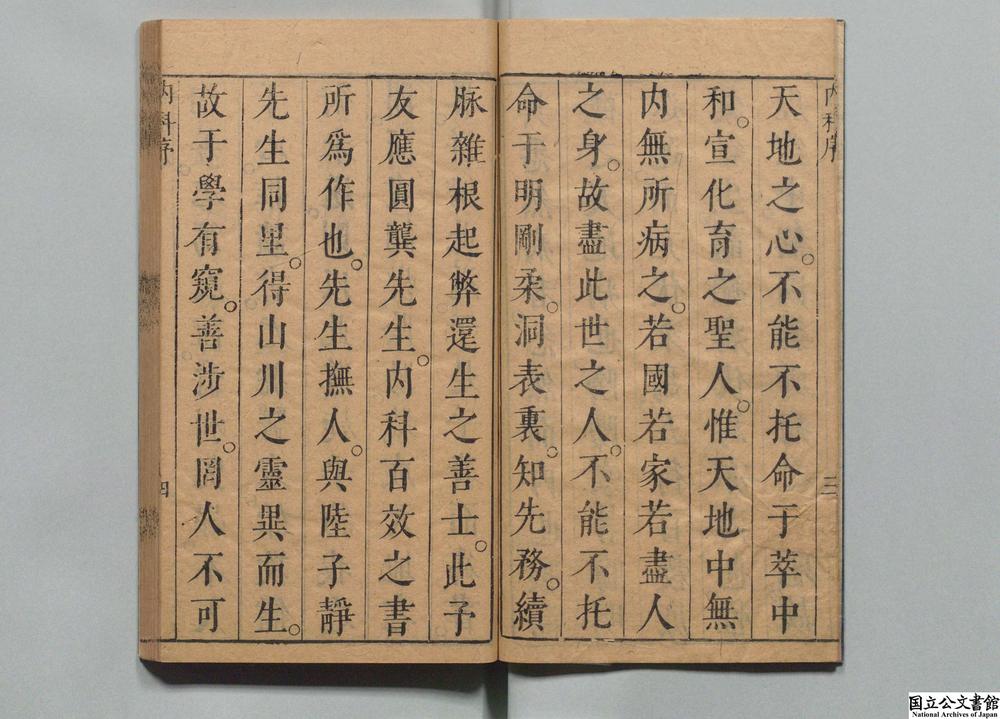 内科序
三
天地之心。不能不托命于萃中
和。宣化育之聖人。惟天地中無
内無所病之。若國若家若盡人
之身。故盡此世之人。不能不托
命于明剛柔。洞表裏。知先務。續
脉雜根起弊還生之善士。此予
友應圓龔先生。内科百效之書
所爲作也。先生撫人。與陸子靜
先生同里。得山川之靈異而生。
故于學有窺。善涉世。罔人不可
内科序
四
国立公文書館
National Archives of Japan